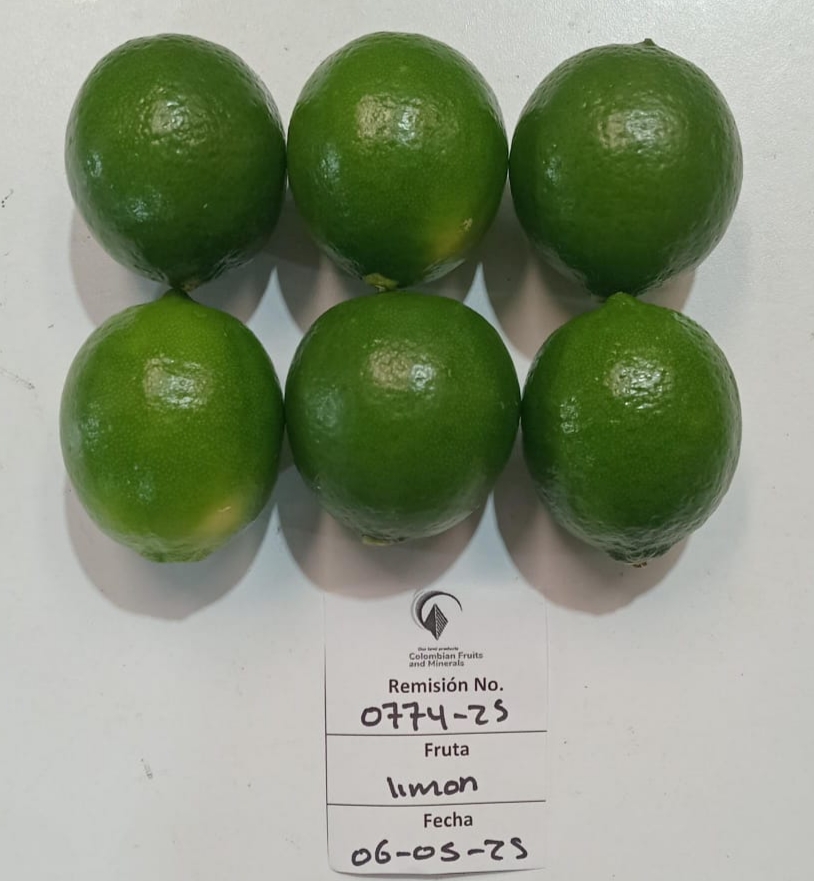 Our land products
Colombian Fruits
and Minerals
Remisión No.
0774-25
Fruta
limon
Fecha
06-05-25